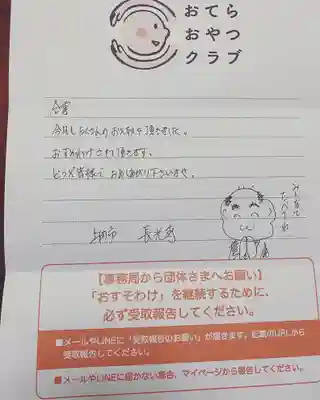 おてら
おやつ
クラブ
合掌
今年もたくさんのお供えを頂きました。
おすそわけさせて頂きます。
どうぞ皆様で お召し上がり下さいませ。
みんなで
たべてね
【事務局から団体さまへお願い】
「おすそわけ」を継続するために、
必ず受取報告してください。
■メールやLINEに「受取報告のお願い」が届きます。記載のURLから
受取報告してください。
■メールやLINEに届かない場合、マイページから報告してください。